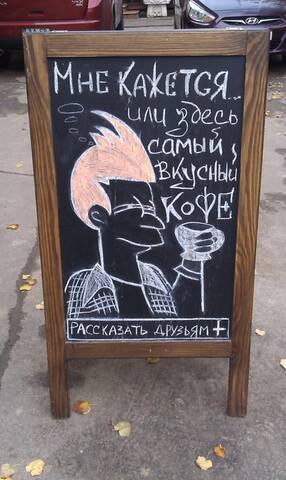 Мне кажется...
или здесь
самый
вкусный
кофе
Рассказать друзьям +